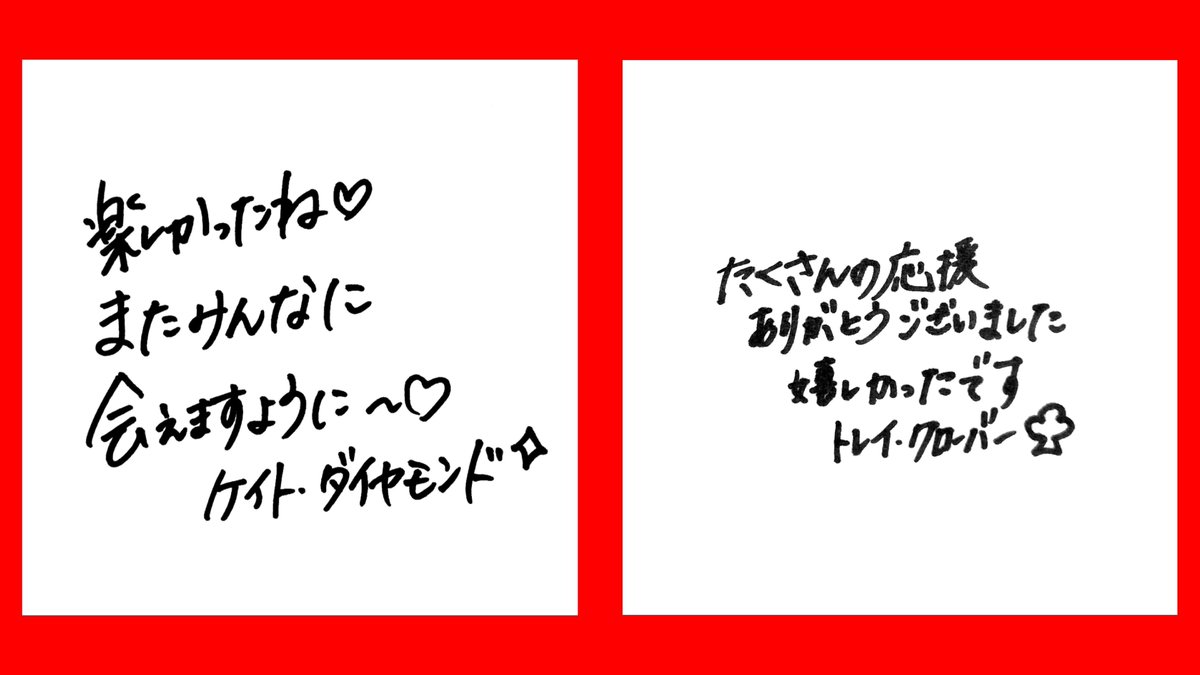 楽しかったね♡
またみんなに
会えますように〜♡
ケイト・ダイヤモンド✧
たくさんの応援
ありがとうございました
嬉しかったです
トレイ・クローバー♧